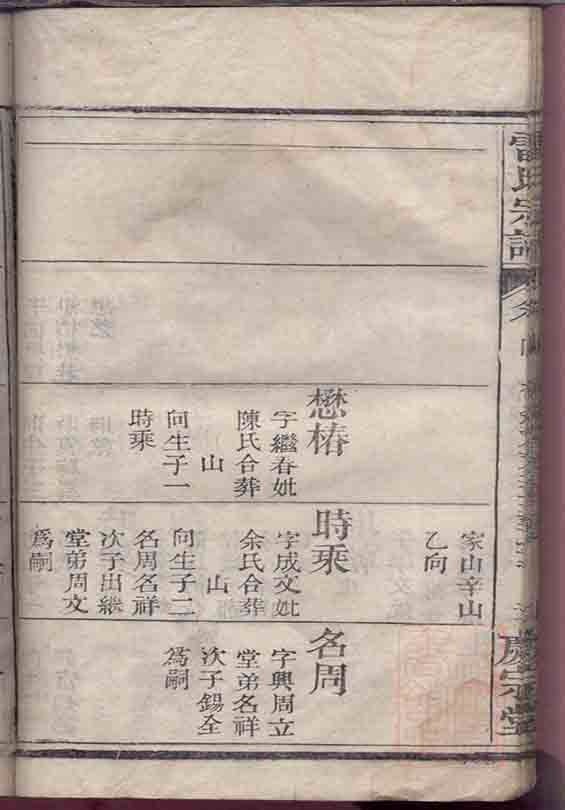 雷氏宗譜
家山辛山
乙向
懋椿
字繼春妣
陳氏合葬
山
向生子一
時乘
時乘
字成文妣
余氏合葬
山
向生子二
名周名祥
次子出繼
堂弟周文
為嗣
名周
字興周立
堂弟名祥
次子錫全
為嗣